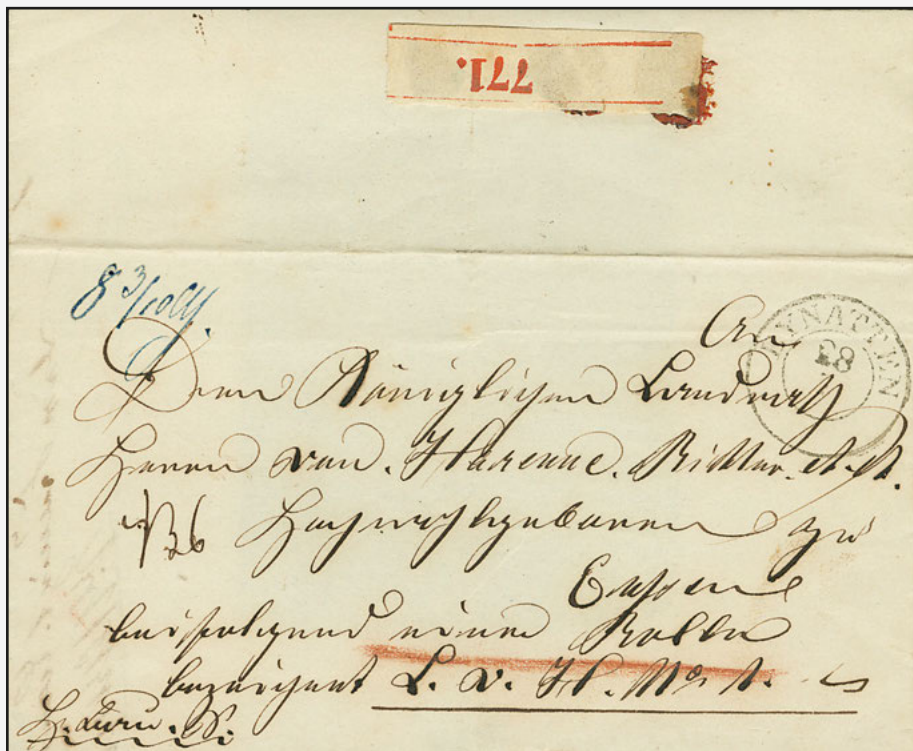 771.
8 3/10
An
RAYNATTEN
28
Dem Königlichen Landrath
Herrn von Harenne. Ritter. etc.
Hochwohlgeboren zu
Eupen
beifolgend einen Rollen
bezeichnet L. v. H. No 1.